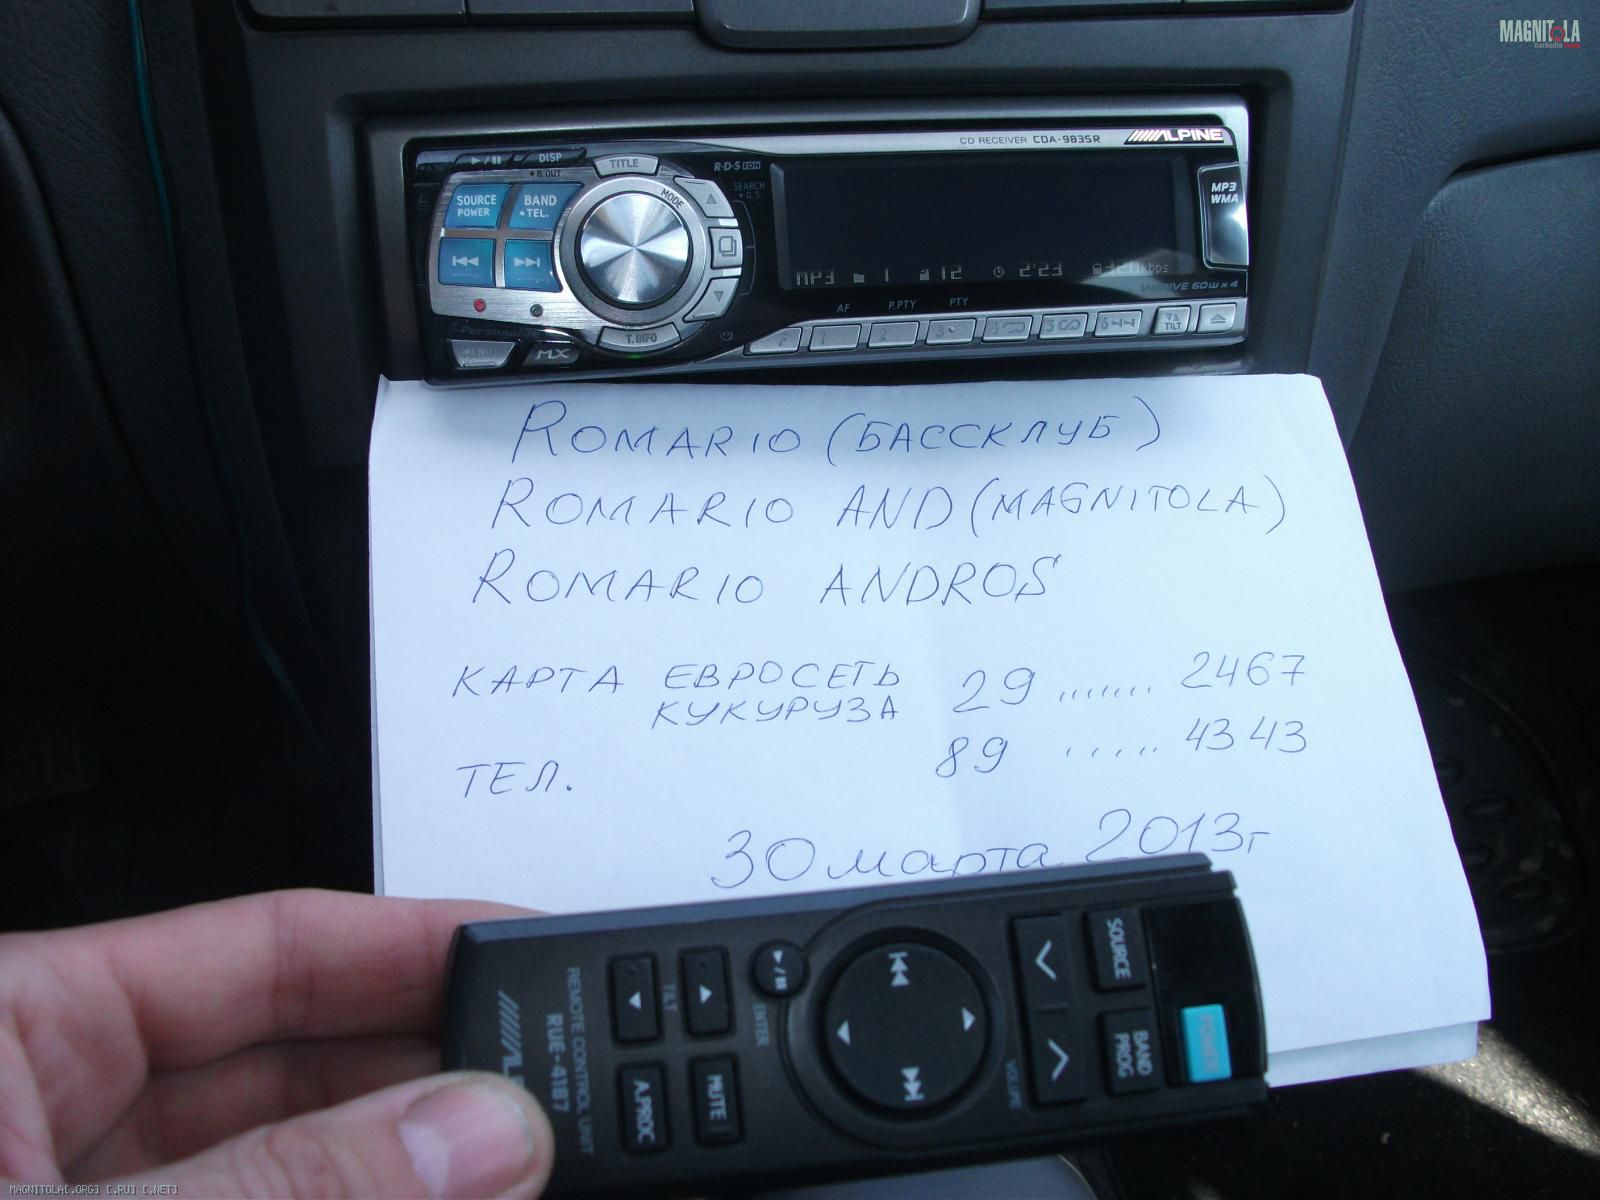 MAGNITOLA
CD RECEIVER CDA-9835R ALPINE
▶/II DISP TITLE R·D·S EON
B.OUT
SOURCE POWER BAND TEL. MODE SEARCH Q.S.
MP3 WMA
MP3 1 12 2'23 320kbps
V-DRIVE 60W x 4
AF P.PTY PTY
1 2 3 4 5 6 TILT
MENU MX T.INFO
ROMARIO (БАССКЛУБ)
ROMARIO AND (MAGNITOLA)
ROMARIO ANDROS
КАРТА ЕВРОСЕТЬ 29 ....... 2467
КУКУРУЗА
ТЕЛ. 89 ..... 4343
30 марта 2013г
SOURCE
BAND PROG
VOLUME
ENTER
TILT
MUTE
A.PROC
REMOTE CONTROL UNIT
RUE-4187
POWER
MAGNITOLA[.ORG] [.RU] [.NET]